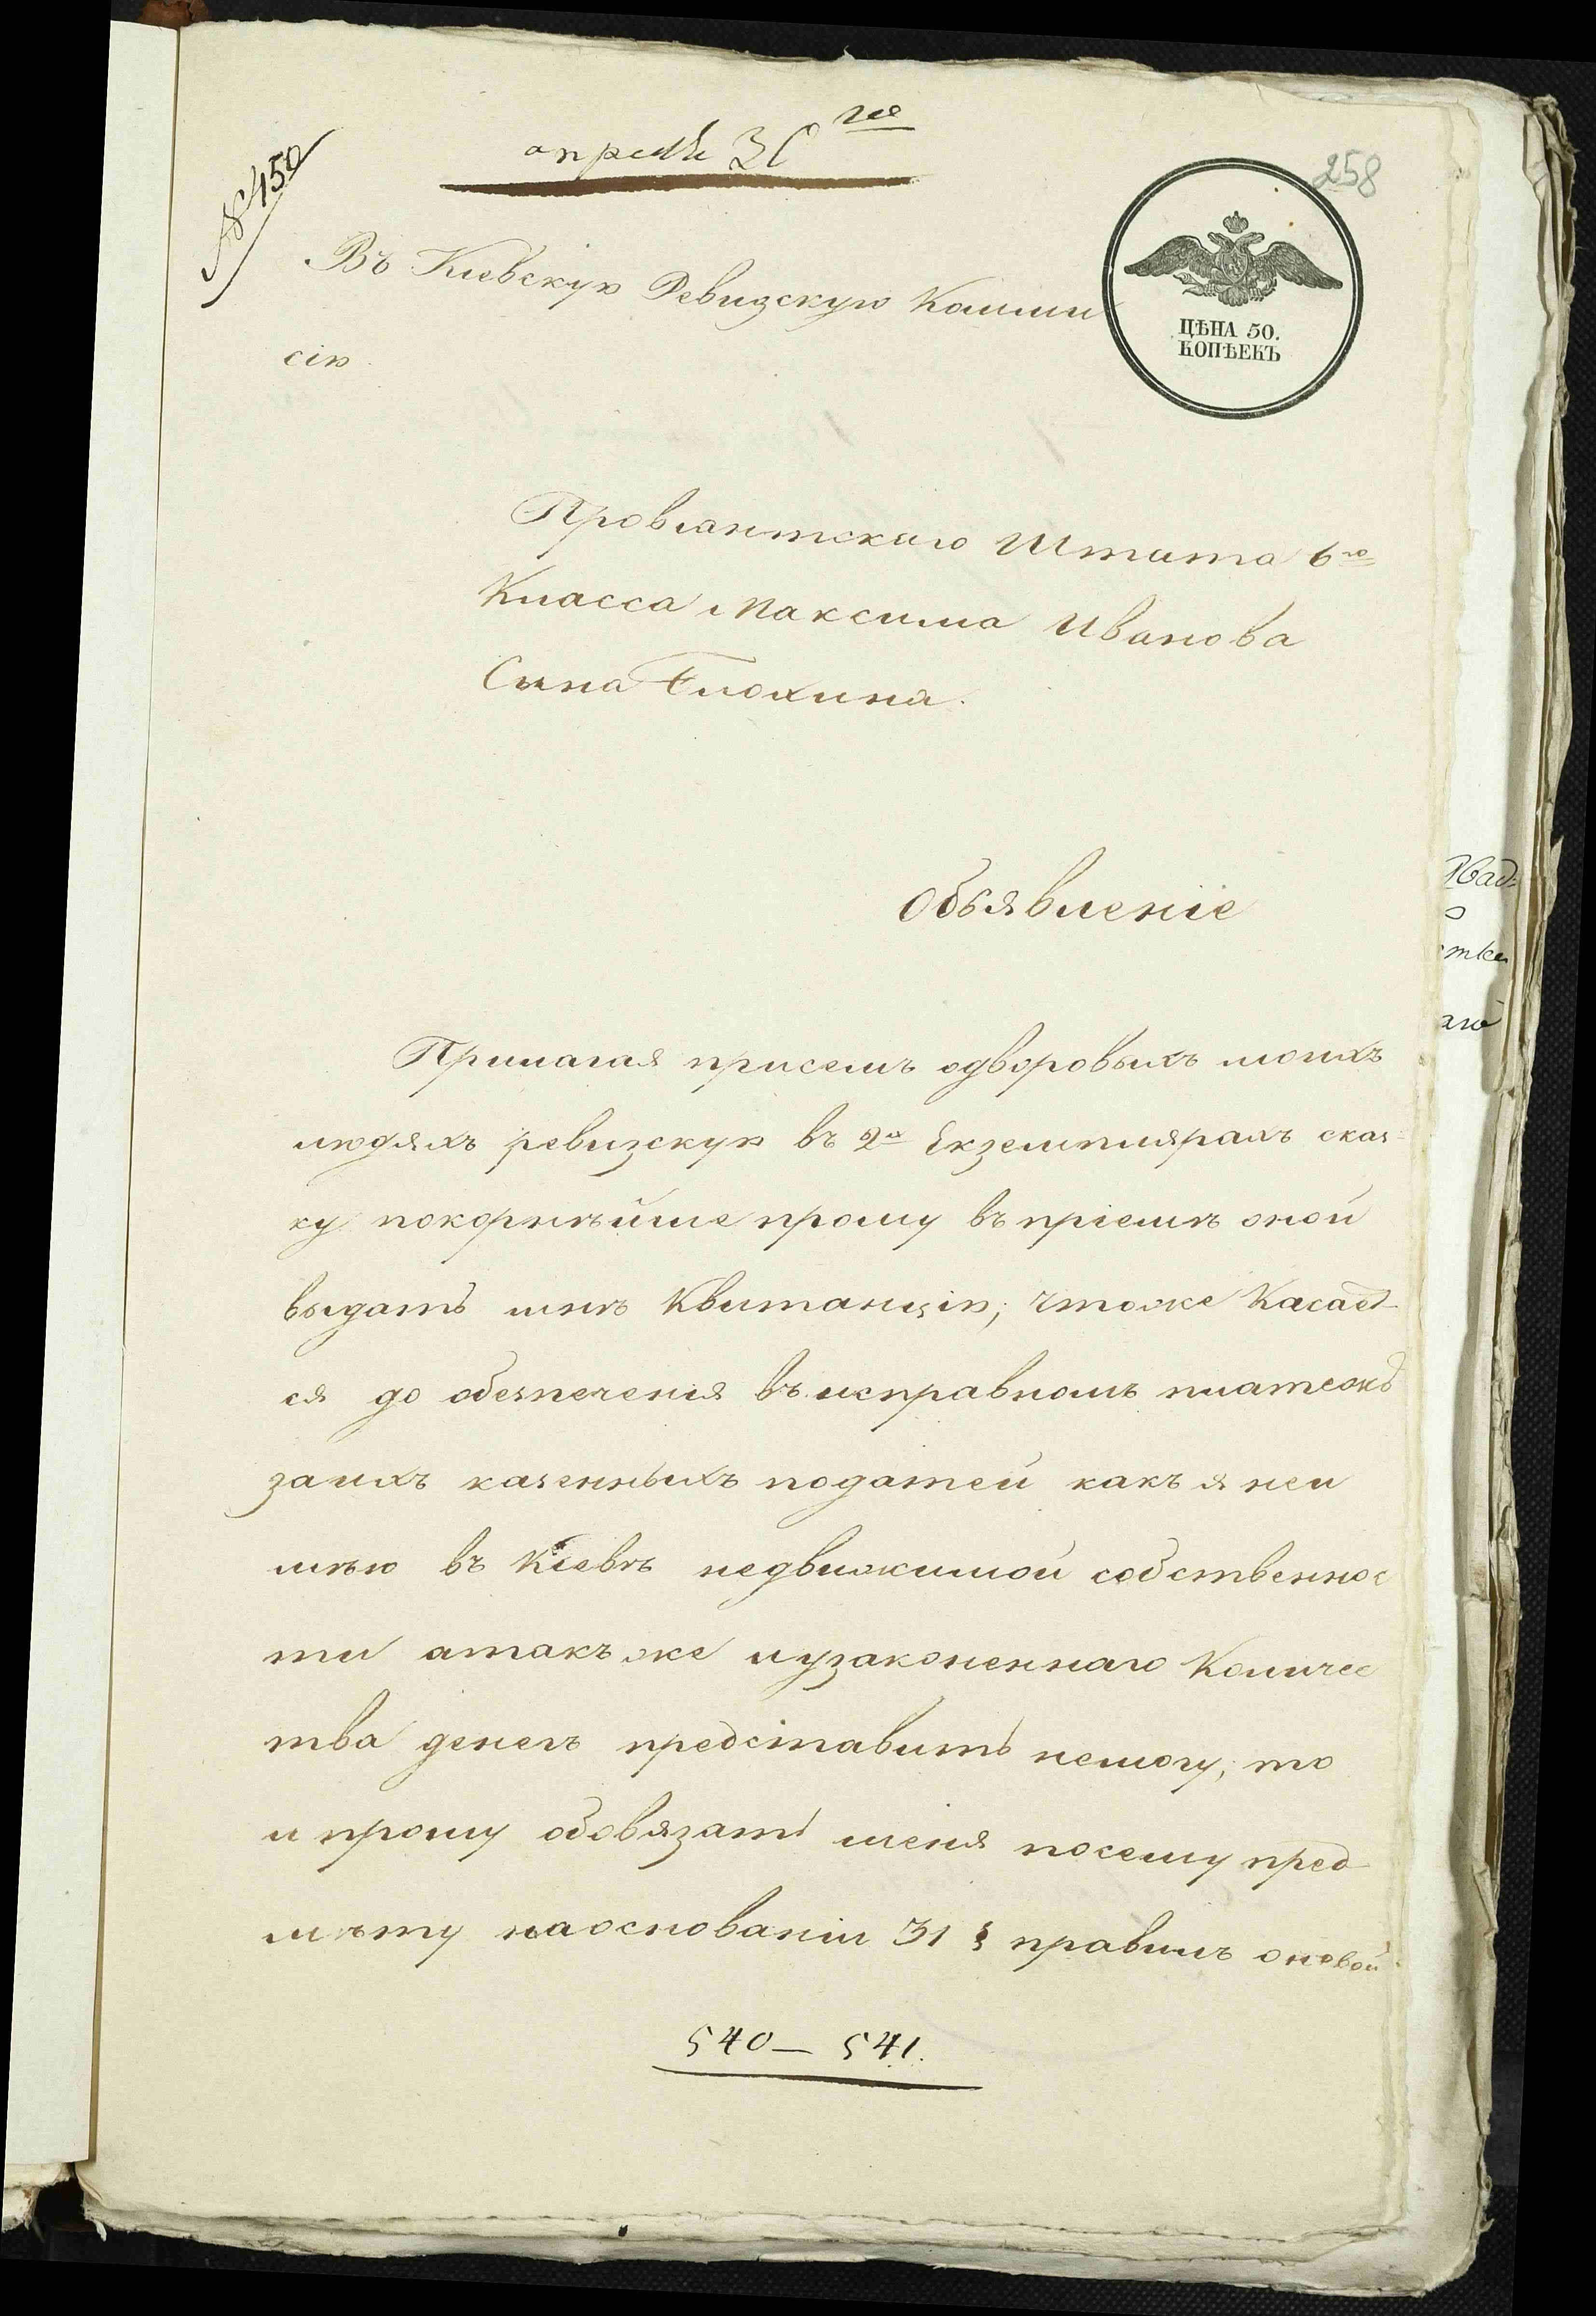 апреля 30 го
258
№ 450
Въ Кіевскую Ревизскую Комми
сію.
ЦѢНА 50.
КОПѢЕКЪ
Провіантскаго Штата 6го
Класса Максима Иванова
Сына Блохина.
Объявленіе
Прилагая присемъ одворовыхъ моихъ
людяхъ ревизскую въ 2х Екземплярахъ скаs=
ку покорнѣйше прошу въ пріемѣ оной
выдать мнѣ Квитанцію; чтоже Касает-
ся до обезпеченія въ исправномъ платежѣ
заихъ казенныхъ податей какъ я неи
мѣю въ Кіевѣ недвижимой собственнос
ти атакъ же иузаконеннаго Количес
тва денегъ представить немогу, то
и прошу обовязать меня посему пред-
мѣту наоснованіи 31 § правилъ оновой
540 — 541.